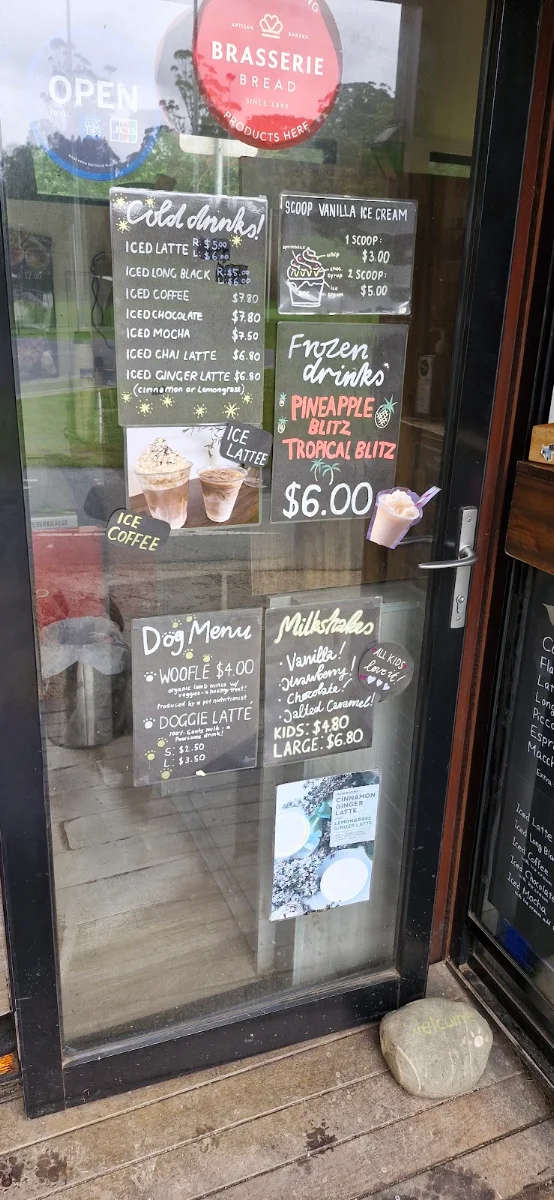 OPEN
JCB
ARTISAN BAKERY
BRASSERIE
BREAD
SINCE 1995
PRODUCTS HERE
Cold drinks!
ICED LATTE R: $5.00
L: $6.00
ICED LONG BLACK R: $5.00
L: $6.00
ICED COFFEE $7.80
ICED CHOCOLATE $7.80
ICED MOCHA $7.50
ICED CHAI LATTE $6.80
ICED GINGER LATTE $6.80
(Cinnamon or Lemongrass)
SCOOP VANILLA ICE CREAM
1 SCOOP:
$3.00
2 SCOOP:
$5.00
sprinkles
whip
choc
syrup
ice
cream
Frozen
drinks
PINEAPPLE
BLITZ
TROPICAL BLITZ
$6.00
ICE
LATTEE
ICE
COFFEE
Dog Menu
WOOFLE $4.00
organic lamb mince w/
veggies - a healthy treat!
Produced by a pet nutritionist
DOGGIE LATTE
100% Goats milk - a
Pawsome drink!
S: $2.50
L: $3.50
Milkshakes
· Vanilla!
· Strawberry!
· Chocolate!
· Salted Caramel!
KIDS: $4.80
LARGE: $6.80
ALL KIDS
love it!
CINNAMON
GINGER
LATTE
LEMONGRASS
GINGER LATTE
Welcome
Espre
Macch
Extra
Iced Latte
Iced Long Bla
Iced Coffee
Iced Chocolate
Iced Mocha